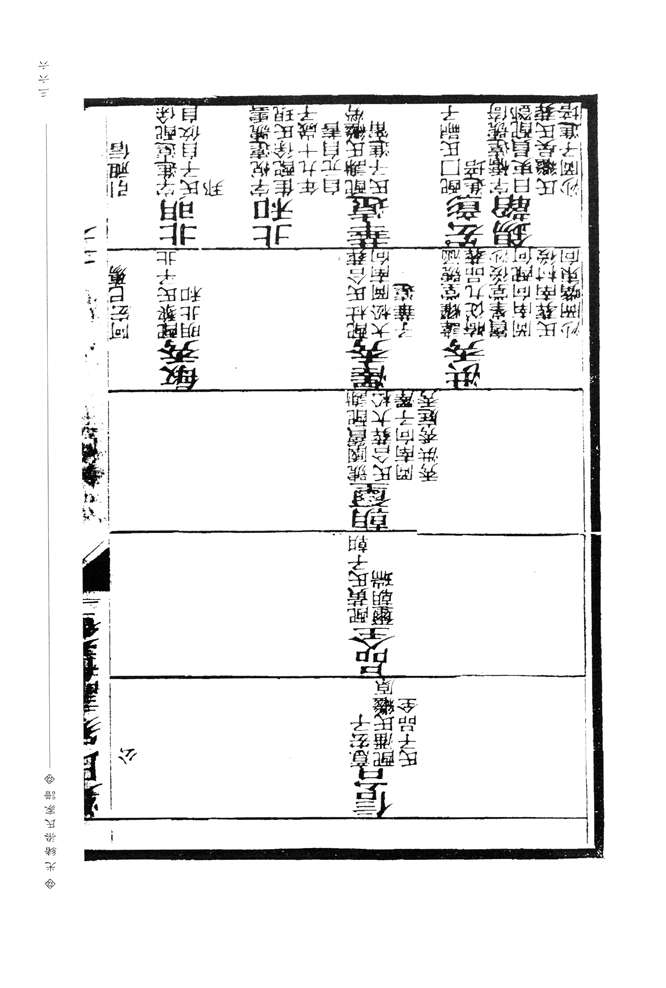 光緒梁氏家譜
三六六
梁氏家譜
公
信
意宏子
配潘氏繼原
氏子品全
品全
配黃氏子朝
璽朝瑞
朝璽
號國寶配謝
氏合葬大松
岡南向子澤
秀洪秀庭秀
阿宏已殤
敏秀
配黎氏子北
明北和
澤秀
配杜氏合葬
大松岡南向
子華遠
洪秀
諱耀堂號涵
從九品葬
寶峯堂後沙
岡南向配何
氏葬南村後
沙岡嘴東向
引祖信
北明
字進遠配徐
氏子自攸自
邦
北和
字悅遠號雲
佳配徐氏現
年九十歲子
自元自善
華遠
配謝氏繼勞
氏子進富
宏彰
配囗氏嗣子
進培
錫韶
字橋遠號倚
日吏員配鄧
氏繼吳氏葬
沙岡子進培